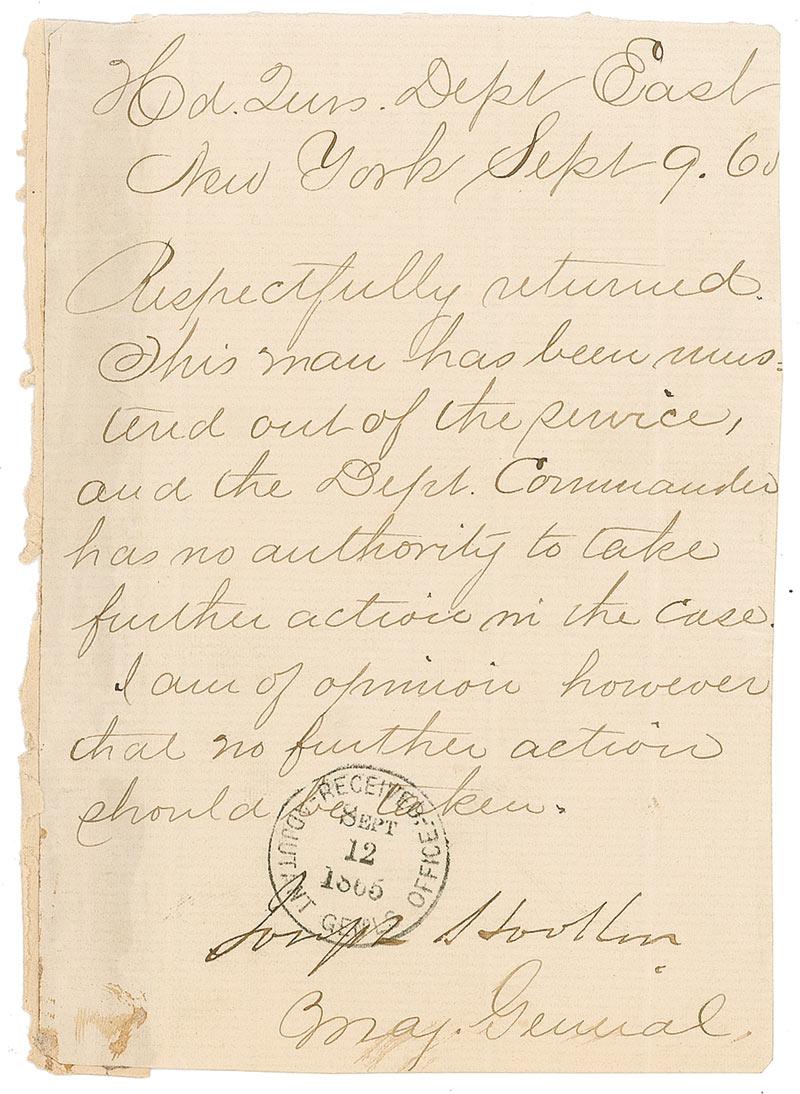 Hd. Qurs. Dept East
New York Sept 9. 65
Respectfully returned.
This man has been mus=
tered out of the service,
and the Dept. Commander
has no authority to take
further action in the case.
I am of opinion however
that no further action
should be taken.
RECEIVED
ADJUTANT GEN'LS OFFICE
SEPT
12
1865
Joseph Hooker
Maj. General